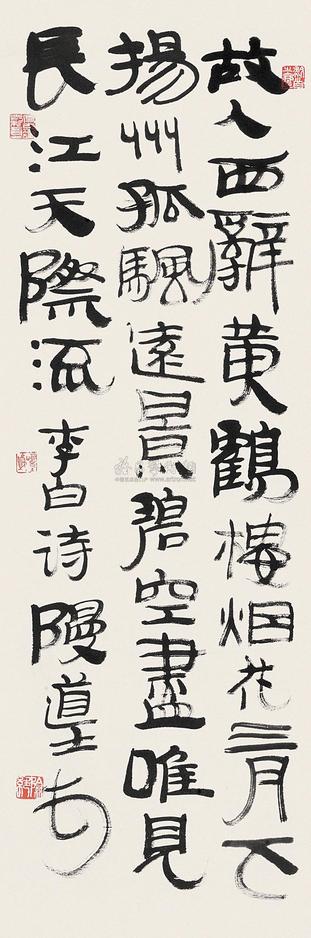 故人西辭黄鶴樓烟花三月下
揚州孤颿遠景碧空盡唯見
長江天際流 李白诗 道士书